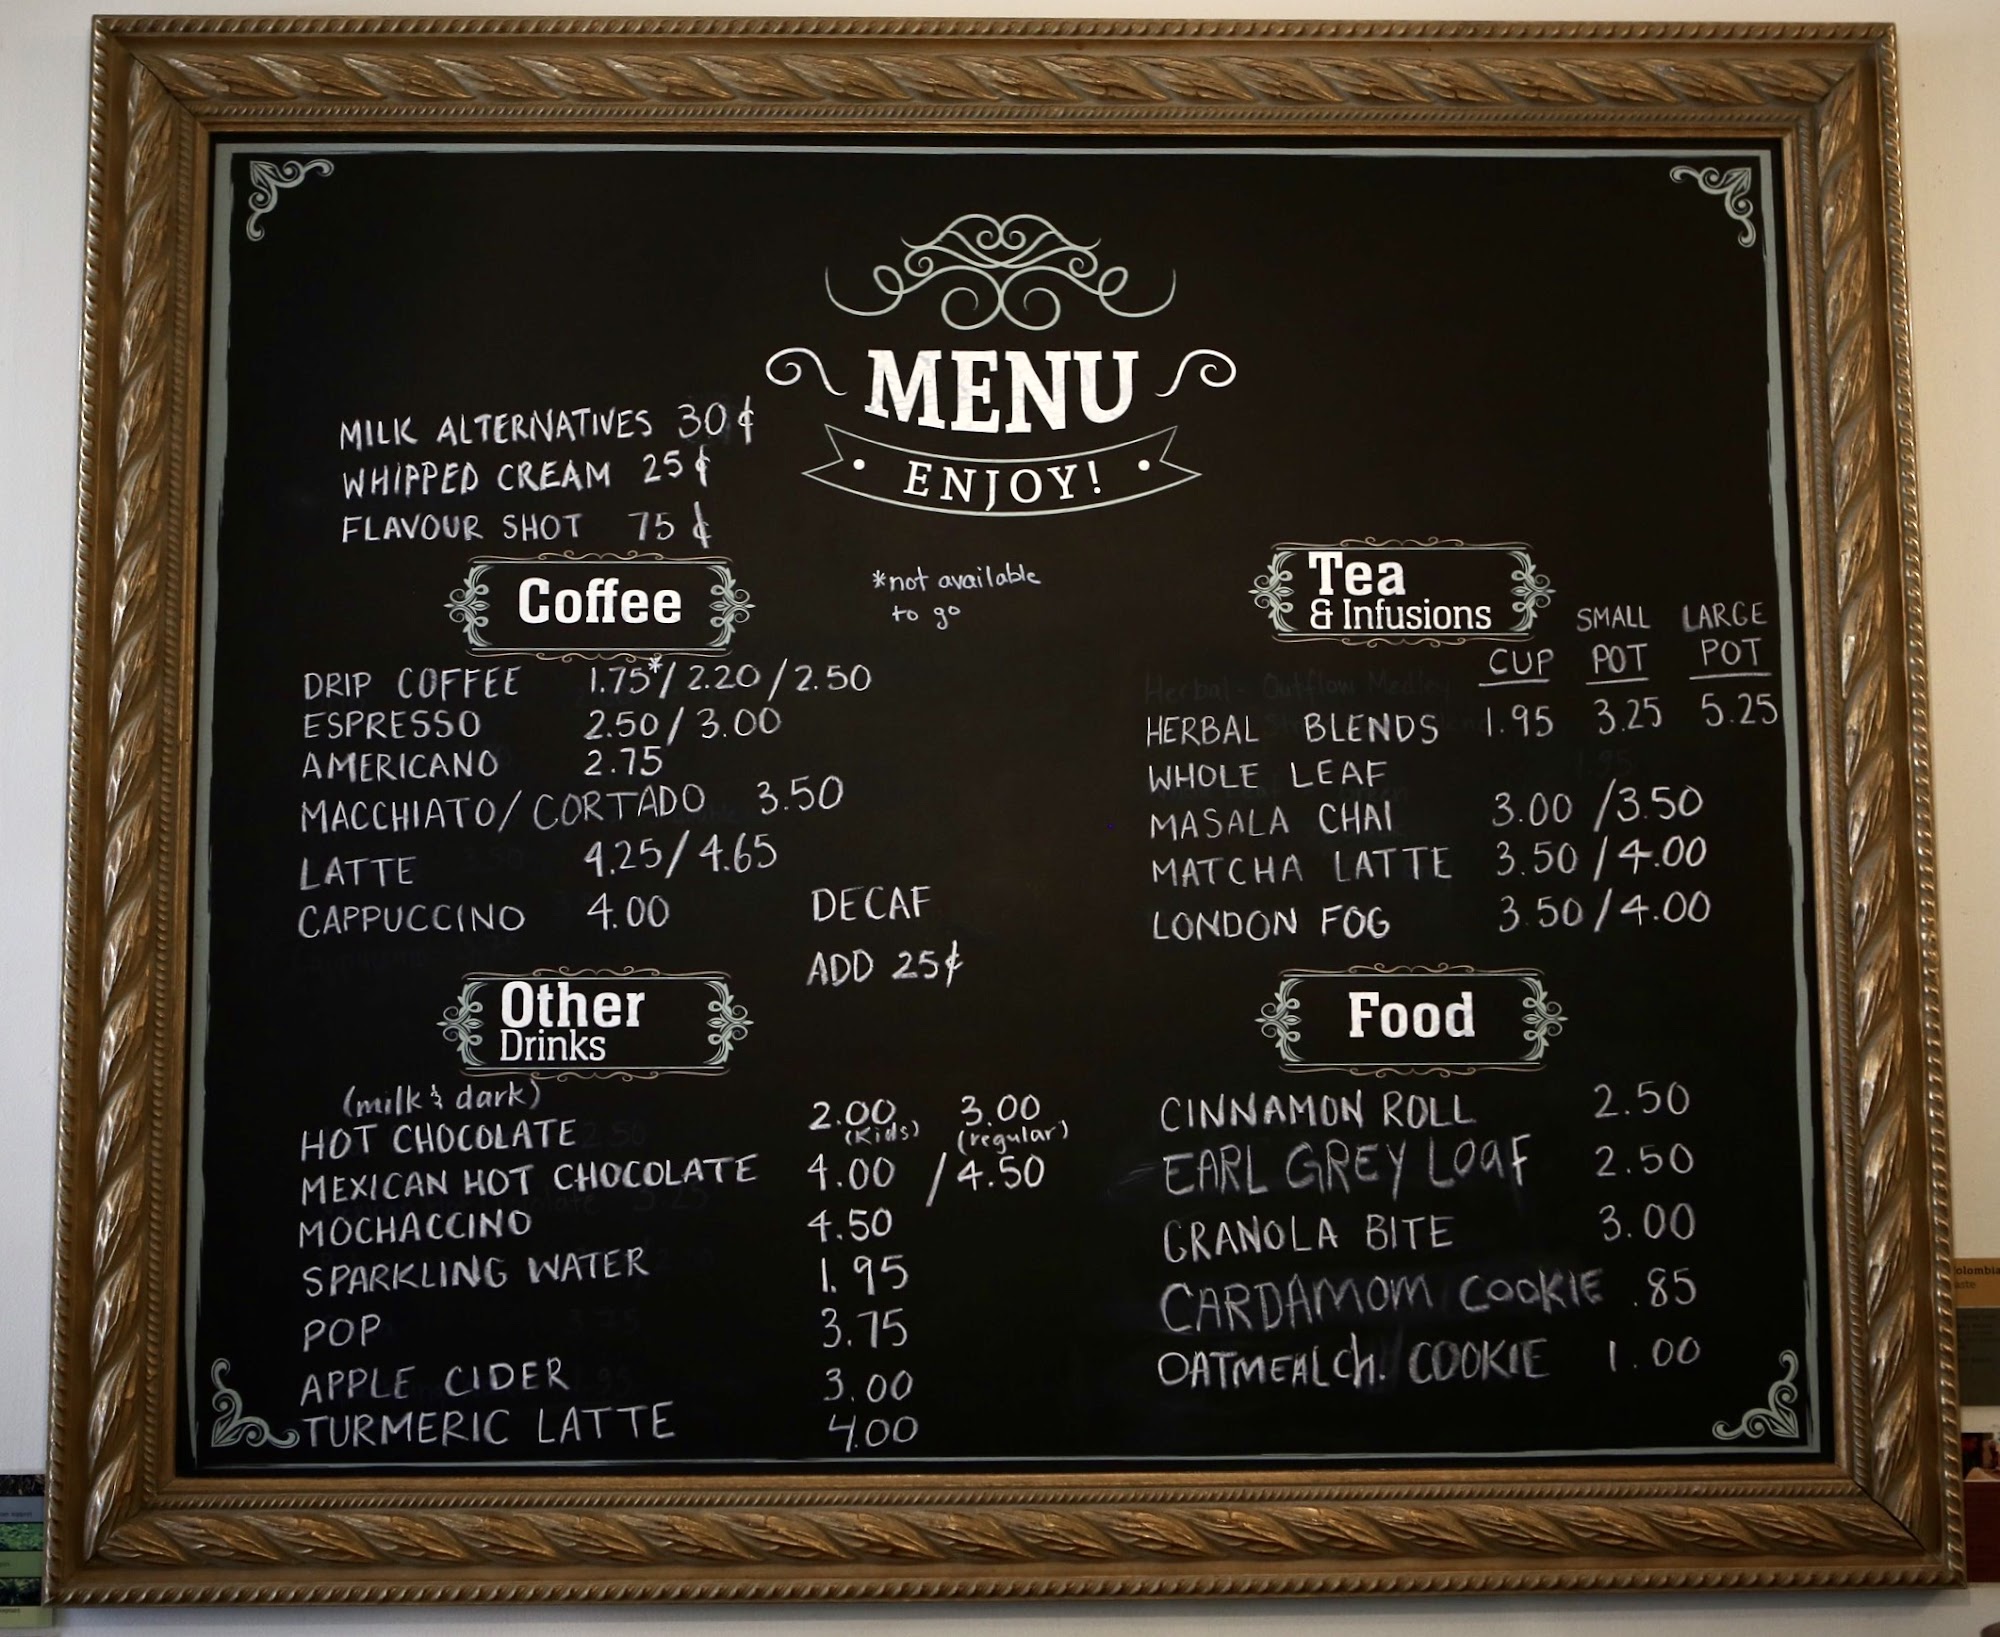 MENU
ENJOY!
MILK ALTERNATIVES 30¢
WHIPPED CREAM 25¢
FLAVOUR SHOT 75¢
Coffee
*not available
to go
DRIP COFFEE 1.75*/2.20/2.50
ESPRESSO 2.50/3.00
AMERICANO 2.75
MACCHIATO/CORTADO 3.50
LATTE 4.25/4.65
CAPPUCCINO 4.00
DECAF
ADD 25¢
Tea
& Infusions
CUP SMALL POT LARGE POT
HERBAL BLENDS 1.95 3.25 5.25
WHOLE LEAF
MASALA CHAI 3.00/3.50
MATCHA LATTE 3.50/4.00
LONDON FOG 3.50/4.00
Other
Drinks
(milk & dark)
HOT CHOCOLATE 2.00 (kids) 3.00 (regular)
MEXICAN HOT CHOCOLATE 4.00 /4.50
MOCHACCINO 4.50
SPARKLING WATER 1.95
POP 3.75
APPLE CIDER 3.00
TURMERIC LATTE 4.00
Food
CINNAMON ROLL 2.50
EARL GREY LOAF 2.50
GRANOLA BITE 3.00
CARDAMOM COOKIE .85
OATMEAL Ch. COOKIE 1.00